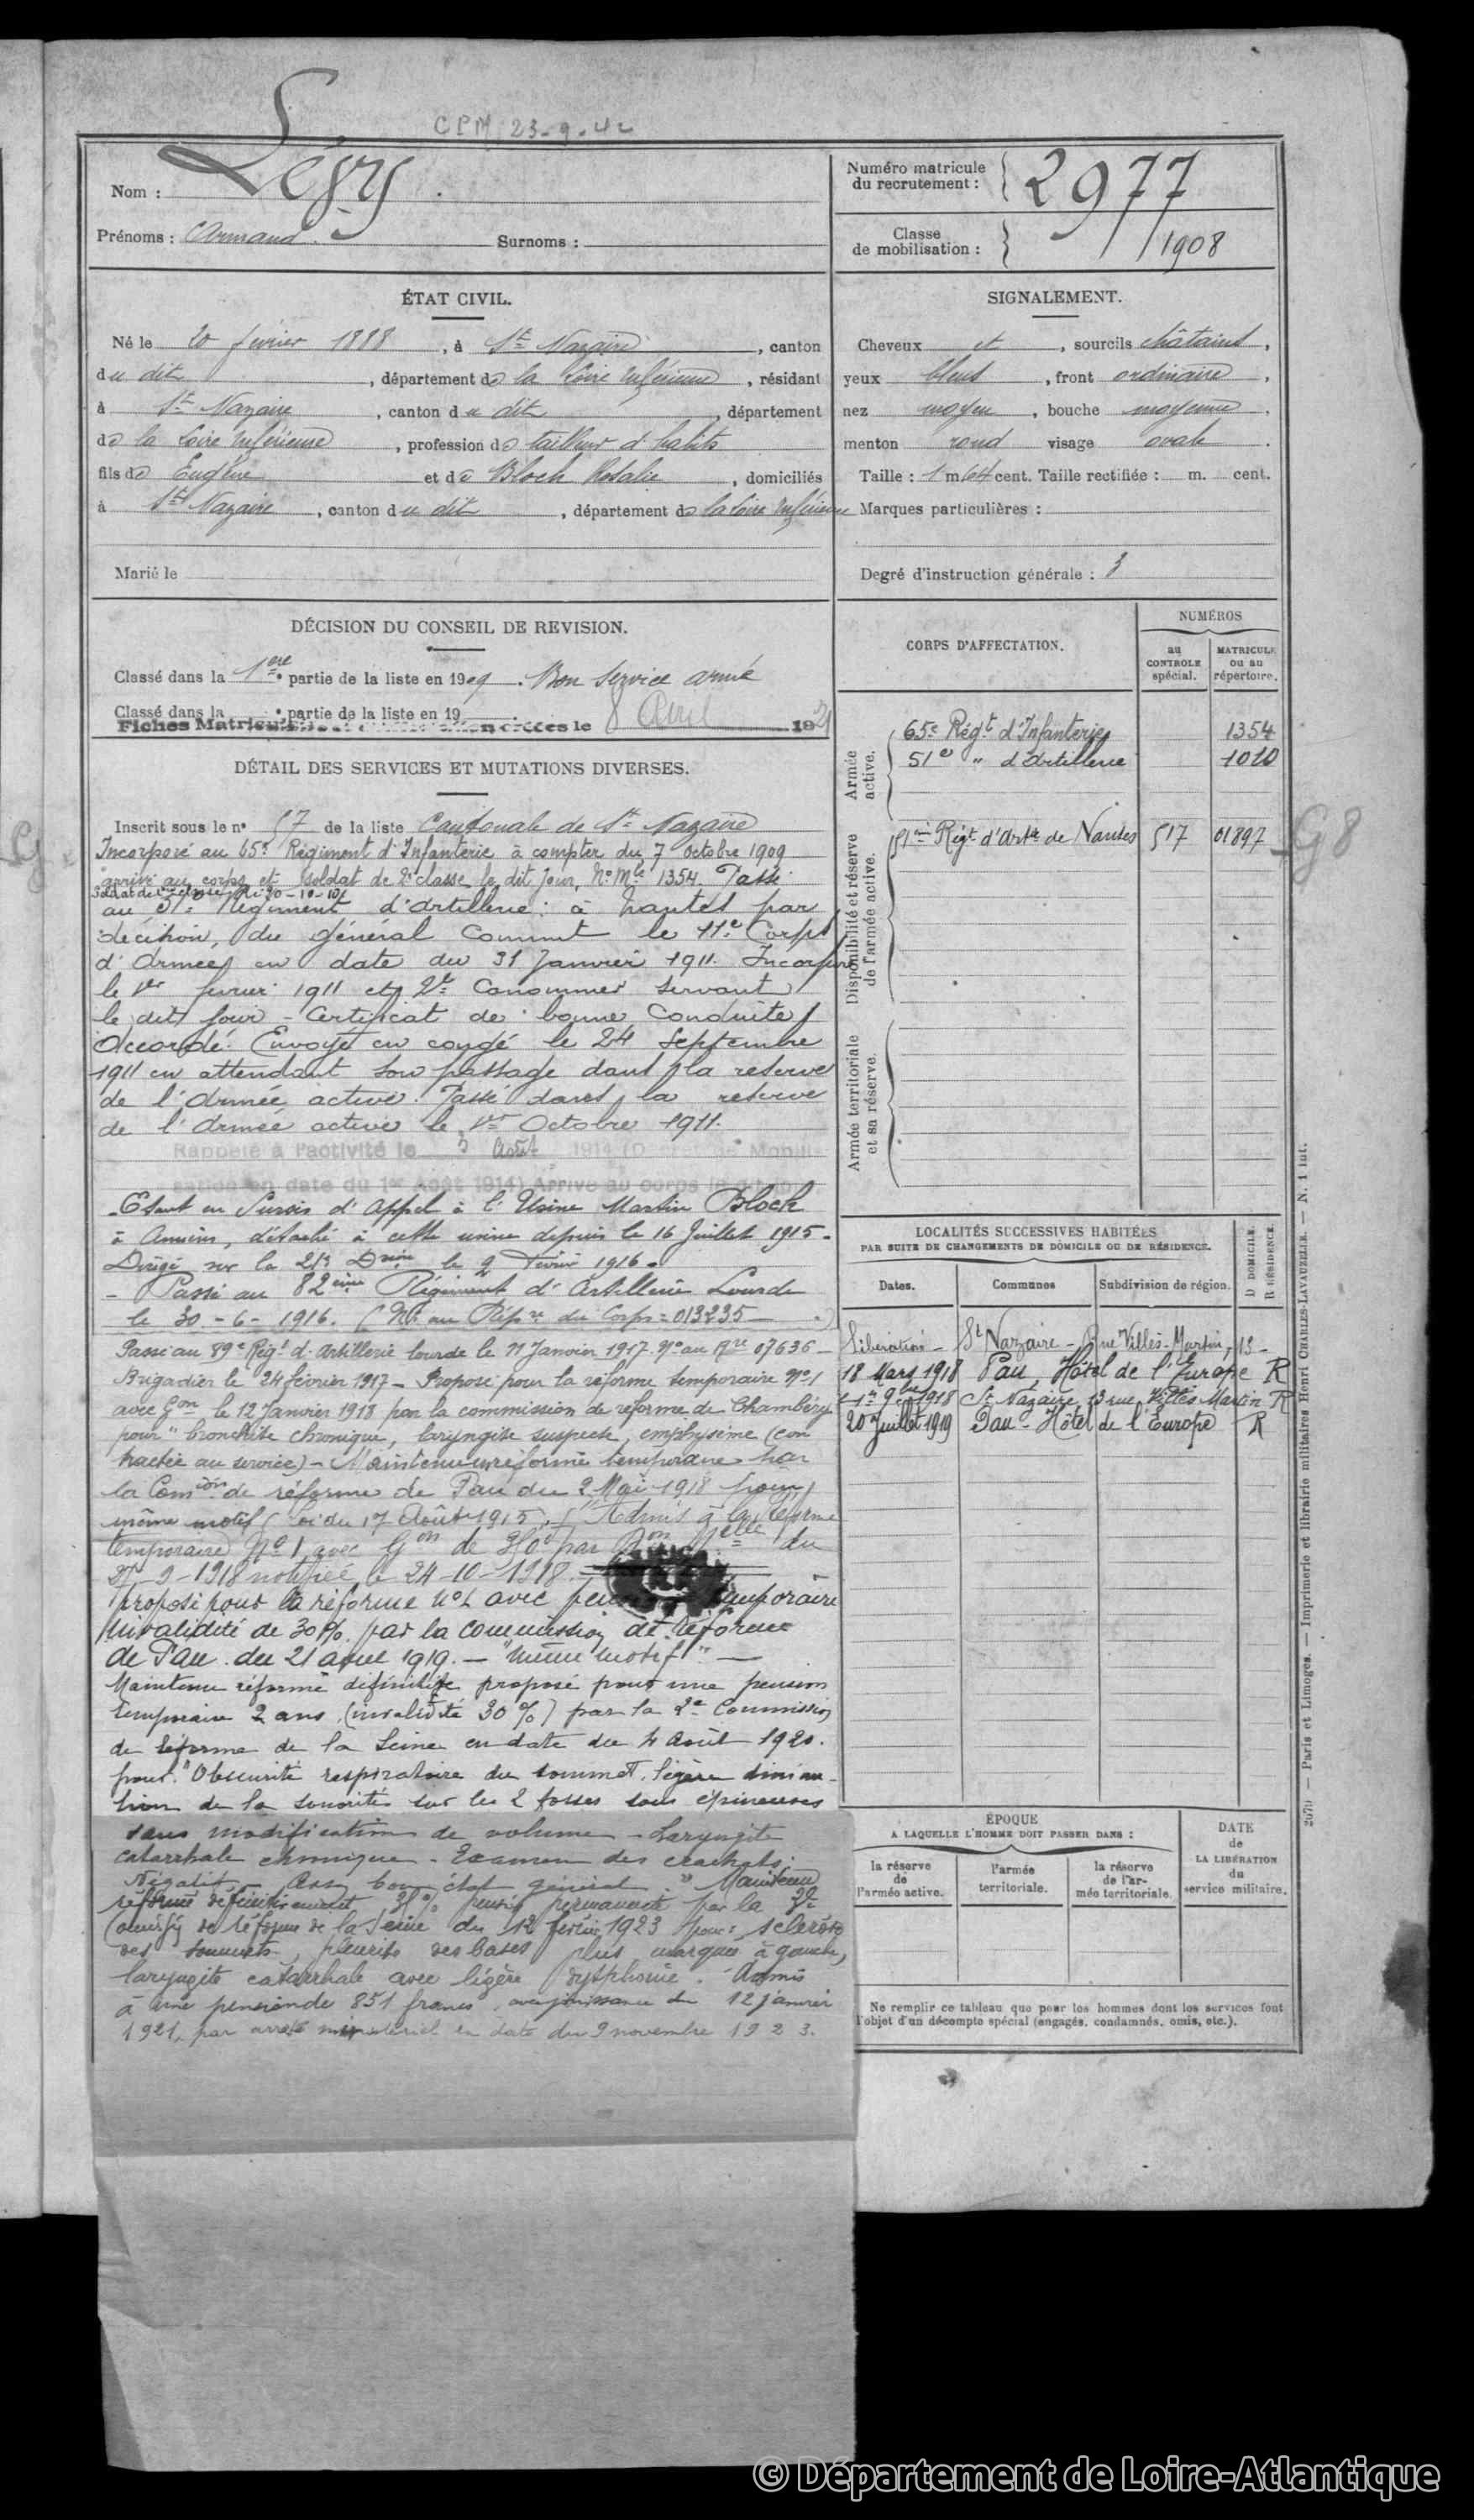 CPM 23-9-42
Nom : Lévy
Prénoms : Armand. Surnoms :
Numéro matricule
du recrutement : 2977
Classe
de mobilisation : 1908
ÉTAT CIVIL.
Né le 20 février 1888, à St Nazaire, canton
du dit, département de la Loire Inférieure, résidant
à St Nazaire, canton du dit, département
de la Loire Inférieure, profession de tailleur d'habits
fils de Eugène et de Bloch Rosalie, domiciliés
à St Nazaire, canton du dit, département de la Loire Inférieure
Marié le
SIGNALEMENT.
Cheveux et, sourcils châtains,
yeux bleus, front ordinaire,
nez moyen, bouche moyenne,
menton rond visage ovale.
Taille : 1 m 64 cent. Taille rectifiée : m. cent.
Marques particulières :
Degré d'instruction générale : 3
DÉCISION DU CONSEIL DE REVISION.
Classé dans la 1ère partie de la liste en 1909. Bon service armé
Classé dans la partie de la liste en 19
Fiches créées le 8 Avril 1921
DÉTAIL DES SERVICES ET MUTATIONS DIVERSES.
Inscrit sous le n° 57 de la liste Cantonale de St Nazaire
Incorporé au 65e Régiment d'Infanterie à compter du 7 octobre 1909
arrivé au corps et soldat de 2e classe le dit jour, No Mle 1354. Passé
Soldat de 1re classe le 10-10-10
au 51e Régiment d'Artillerie à Nantes par
décision du général Commt le 11e Corps
d'Armée en date du 31 Janvier 1911. Incorporé
le 1er février 1911 et 2e Canonnier servant
le dit jour - Certificat de bonne Conduite
Accordé. Envoyé en congé le 24 Septembre
1911 en attendant son passage dans la réserve
de l'Armée active. Passé dans la réserve
de l'Armée active le 1er Octobre 1911.
Rappelé à l'activité le 3 Août 1914 (Décret de Mobili-
sation en date du 1er Août 1914) Arrivé au corps le
Etant en Sursis d'appel à l'Usine Martin Bloch
à Amiens, détaché à cette usine depuis le 16 Juillet 1915 -
Dirigé sur la le 2 Févier 1916.
- Passé au 82ème Régiment d'Artillerie Lourde
le 30-6-1916. (No au Répre du Corps = 013235)
Passé au 89e Régt d'Artillerie lourde le 11 Janvier 1917. No au Rre 07636 -
Brigadier le 24 février 1917 - Proposé pour la réforme temporaire No 1
avec Gon le 12 Janvier 1918 par la commission de réforme de Chambéry
pour "bronchite chronique, laryngite suspecte, emphysème (con
tractée au service) - Maintenu réformé temporaire par
la Comon de réforme de Pau du 2 Mai 1918 pour
même motif (loi du 17 Août 1915). Admis à la réforme
temporaire No 1 avec Gon de par Don Melle du
9-1918 notifiée le 24-10-1918.
Proposé pour la réforme No 1 avec pension temporaire
Invalidité de 30%. par la commission de réforme
de Pau du 21 aout 1919. - "même motif" -
Maintenu réformé définitif proposé pour une pension
temporaire 2 ans (invalidité 30%) par la 2e Commission
de réforme de la Seine en date du 4 Août 1920.
pour "Obscurité respiratoire du sommet, légère diminu-
tion de la sonorité sur les 2 fosses sous épineuses
sans modification de volume - Laryngite
catarrhale chronique - Examen des crachats
Négatif - Assez bon état général." Maintenu
réformé définitivement pension permanente par la
Comion de réforme de la Seine du 12 février 1923 pour : sclérose
des sommets, pleurite des bases plus marquée à gauche,
laryngite catarrhale avec légère dysphonie. Admis
à une pension de 851 francs, avec jouissance du 12 janvier
1921, par arrêté ministériel en date du 9 novembre 1923.
CORPS D'AFFECTATION.
NUMÉROS
au CONTROLE spécial.
MATRICULE ou au répertoire.
Armée active.
65e Régt d'Infanterie 1354
51e " d'Artillerie 1010
Disponibilité et réserve de l'armée active.
51me Régt d'Artie de Nantes 517 01897
G8
Armée territoriale et sa réserve.
LOCALITÉS SUCCESSIVES HABITÉES
PAR SUITE DE CHANGEMENTS DE DOMICILE OU DE RÉSIDENCE.
Dates. Communes Subdivision de région. D DOMICILE. R RÉSIDENCE.
Libération - St Nazaire - Rue Villès-Martin, 13 -
18 Mars 1918 Pau, Hôtel de l'Europe R
1er 9bre 1918 St Nazaire, 13 rue Villès Martin R
20 Juillet 1919 Pau - Hôtel de l'Europe R
ÉPOQUE
A LAQUELLE L'HOMME DOIT PASSER DANS :
la réserve de l'armée active.
l'armée territoriale.
la réserve de l'armée territoriale.
DATE de LA LIBÉRATION du service militaire.
Ne remplir ce tableau que pour les hommes dont les services font
l'objet d'un décompte spécial (engagés, condamnés, omis, etc.).
Paris et Limoges. — Imprimerie et librairie militaires Henri CHARLES-LAVAUZELLE. — N. 1 int.
© Département de Loire-Atlantique